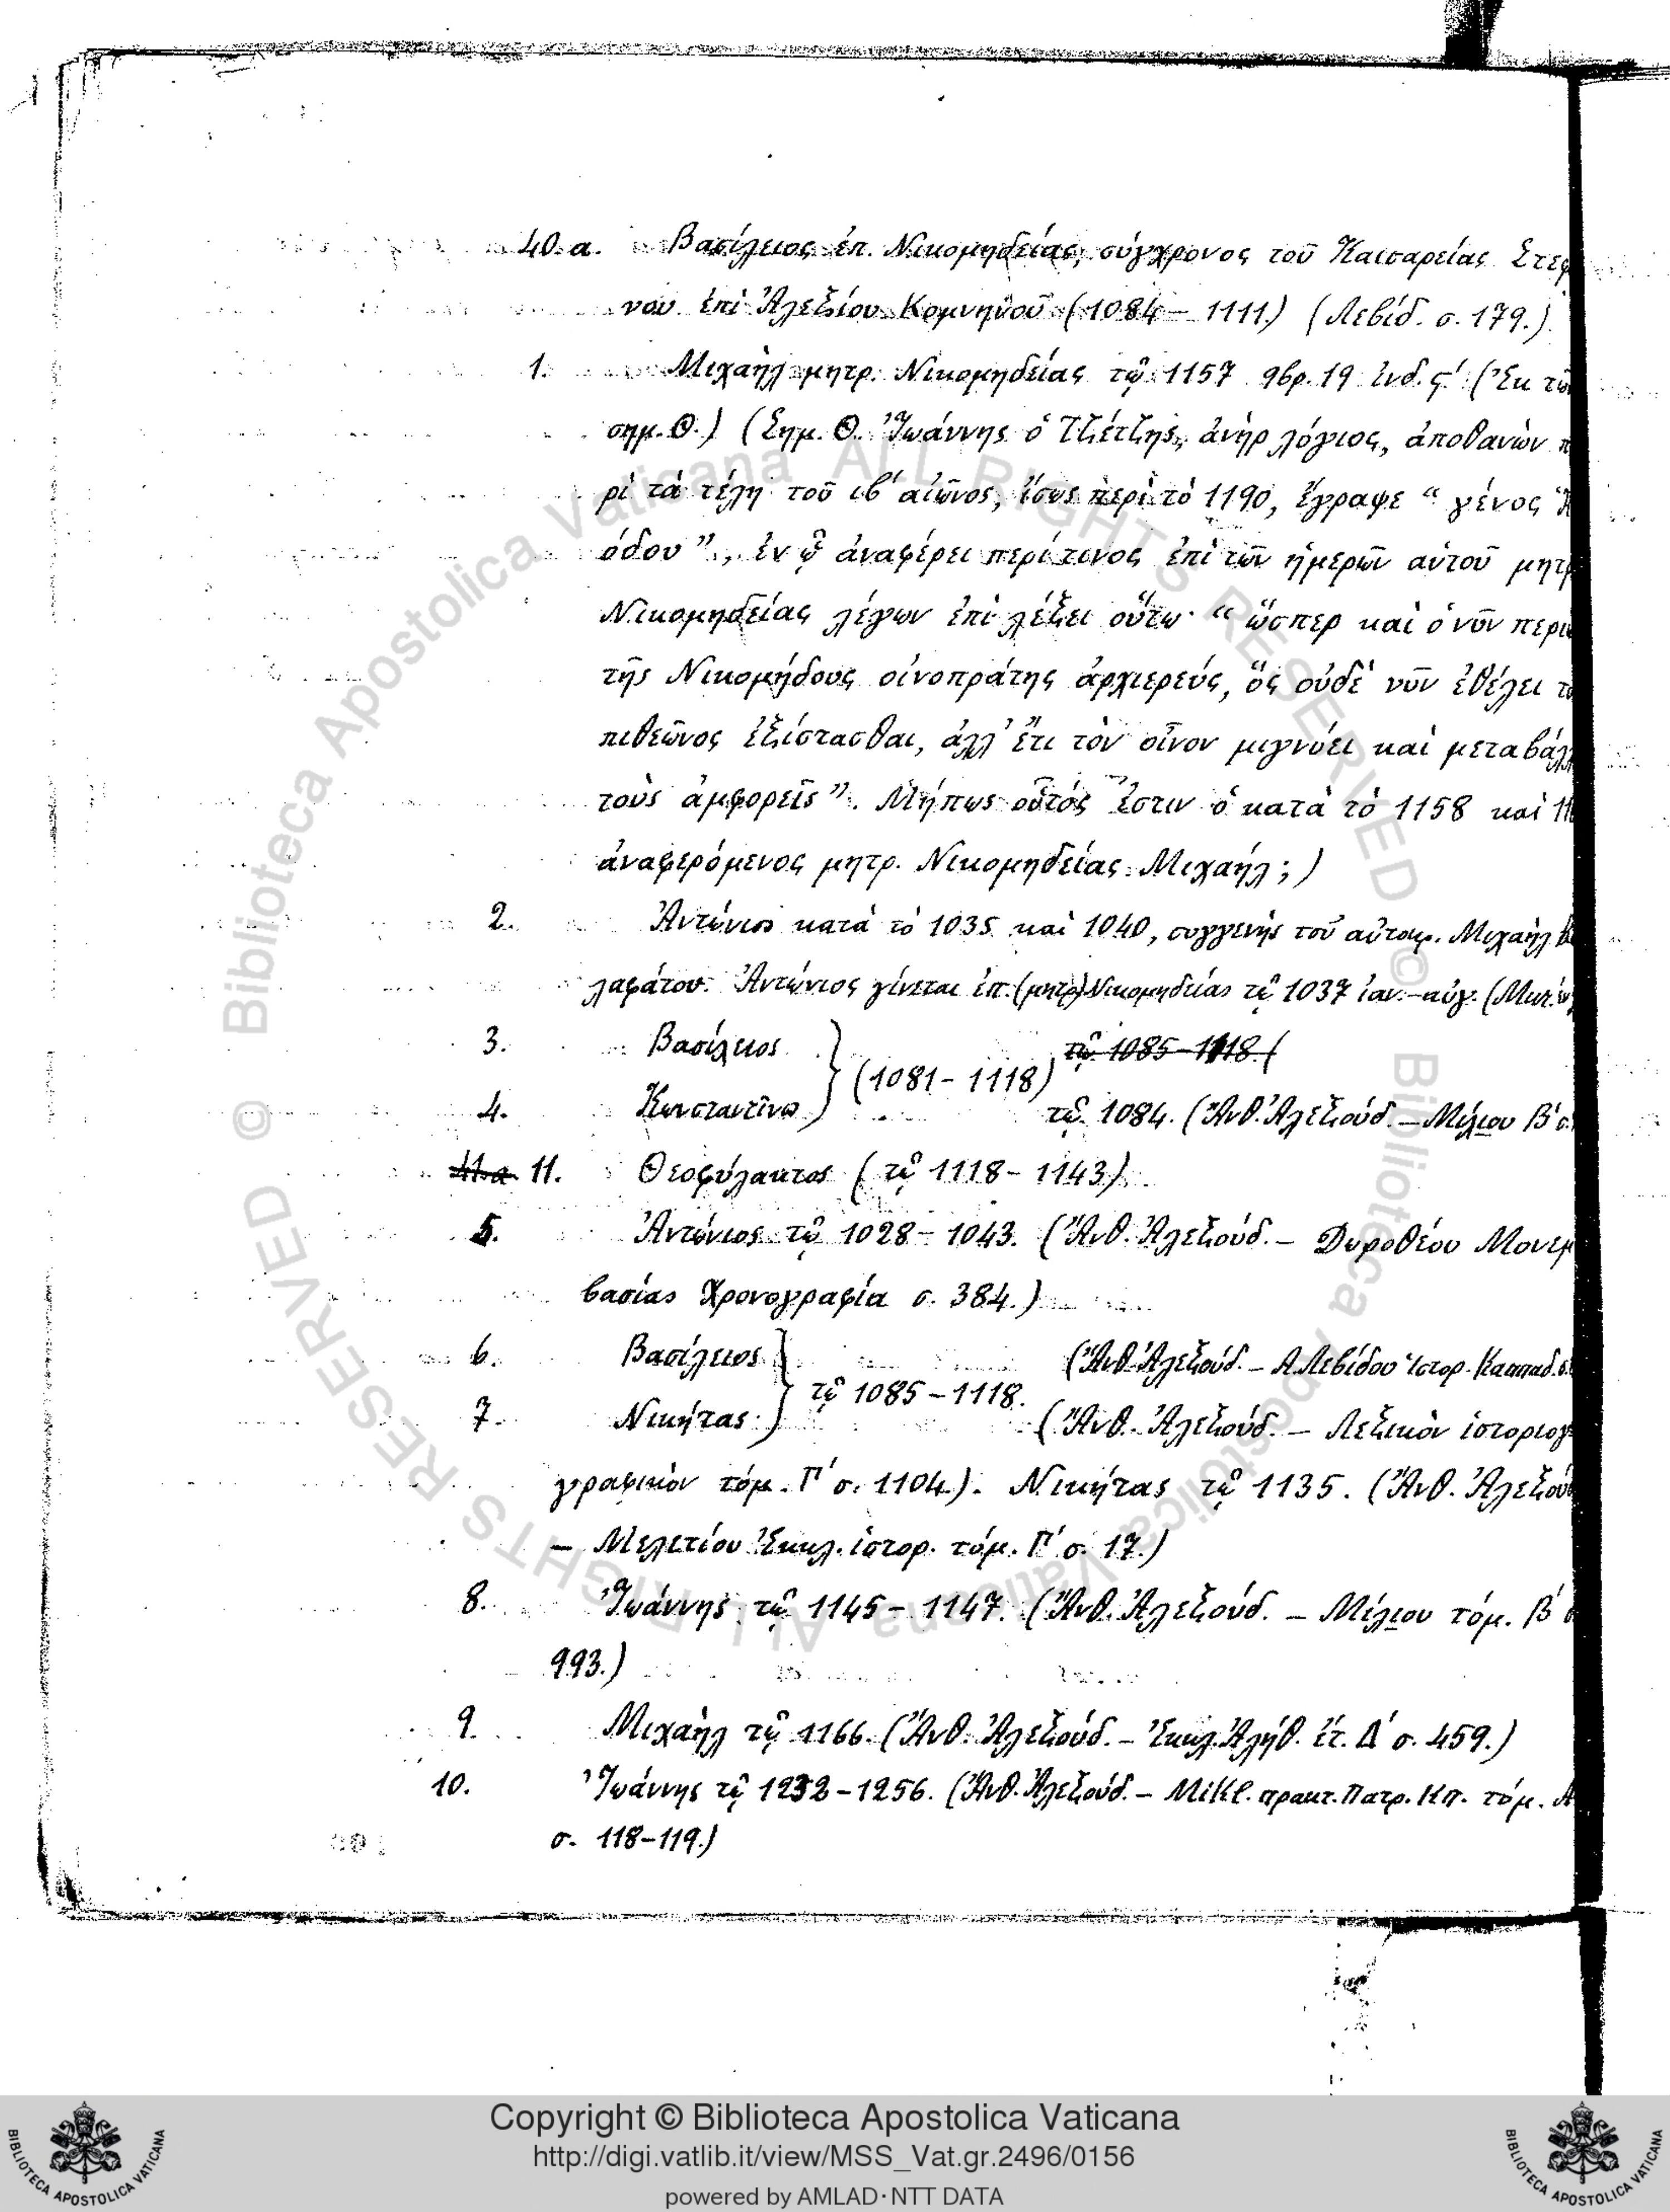 40.α. Βασίλειος ἐπ. Νικομηδείας, σύγχρονος τοῦ Καισαρείας Στεφ
νου ἐπὶ Ἀλεξίου Κομνηνοῦ (1084 – 1111) (Λεβίδ. σ. 179.)
1. Μιχαὴλ μητρ. Νικομηδείας τῷ 1157 9βρ. 19 ἰνδ. ϛ΄ (Ἐκ τῶ
σημ. Θ.) (Σημ. Θ. Ἰωάννης ὁ Τζέτζης, ἀνὴρ λόγιος, ἀποθανὼν π
ρὶ τὰ τέλη τοῦ ιβ΄ αἰῶνος, ἴσως περὶ τὸ 1190, ἔγραψε “ γένος Ἡ
όδου ”, ἐν ᾧ ἀναφέρει περί τινος ἐπὶ τῶν ἡμερῶν αὐτοῦ μητρ
Νικομηδείας λέγων ἐπὶ λέξει οὕτω· “ ὥσπερ καὶ ὁ νῦν περι
τῆς Νικομήδους οἰνοπράτης ἀρχιερεύς, ὃς οὐδὲ νῦν ἐθέλει τ
πιθεῶνος ἐξίστασθαι, ἀλλ’ ἔτι τὸν οἶνον μιγνύει καὶ μεταβάλ
τοὺς ἀμφορεῖς ”. Μήπως οὗτός ἐστιν ὁ κατὰ τὸ 1158 καὶ 11
ἀναφερόμενος μητρ. Νικομηδείας Μιχαήλ; )
2. Ἀντώνιος κατὰ τὸ 1035 καὶ 1040, συγγενὴς τοῦ αὐτοκρ. Μιχαὴλ
λαφάτου. Ἀντώνιος γίνεται ἐπ. (μητρ.) Νικομηδείας τῷ 1037 ἰαν.–αὐγ.
3. Βασίλειος τῷ 1085–1118. (
(1081 – 1118)
4. Κωνσταντῖνος τῷ 1084. (Ἄνθ. Ἀλεξούδ. – Μίλιου Β΄ σ.
41.α 11. Θεοφύλακτος ( τῷ 1118 – 1143).
5. Ἀντώνιος τῷ 1028 – 1043. (Ἄνθ. Ἀλεξούδ. – Δωροθέου Μονεμ
βασίας Χρονογραφία σ. 384.)
6. Βασίλειος (Ἄνθ. Ἀλεξούδ. – Α. Λεβίδου Ἱστορ. Καππαδ. σ
τῷ 1085 – 1118.
7. Νικήτας (Ἄνθ. Ἀλεξούδ. – Λεξικὸν ἱστοριογ
γραφικὸν τόμ. Γ΄ σ. 1104). Νικήτας τῷ 1135. (Ἄνθ. Ἀλεξού
– Μελετίου Ἐκκλ. ἱστορ. τόμ. Γ΄ σ. 17.)
8. Ἰωάννης τῷ 1145 – 1147. (Ἄνθ. Ἀλεξούδ. – Μίλιου τόμ. Β΄ σ
993.)
9. Μιχαὴλ τῷ 1166. (Ἄνθ. Ἀλεξούδ. – Ἐκκλ. Ἀλήθ. ἔτ. Δ΄ σ. 459.)
10. Ἰωάννης τῷ 1232 – 1256. (Ἄνθ. Ἀλεξούδ. – Mikl. πρακτ. Πατρ. Κπ. τόμ. Α
σ. 118–119.)
© Biblioteca Apostolica Vaticana ALL RIGHTS RESERVED
© Biblioteca Apostolica Vaticana ALL RIGHTS RESERVED
Copyright © Biblioteca Apostolica Vaticana
http://digi.vatlib.it/view/MSS_Vat.gr.2496/0156
powered by AMLAD·NTT DATA
BIBLIOTECA APOSTOLICA VATICANA
BIBLIOTECA APOSTOLICA VATICANA